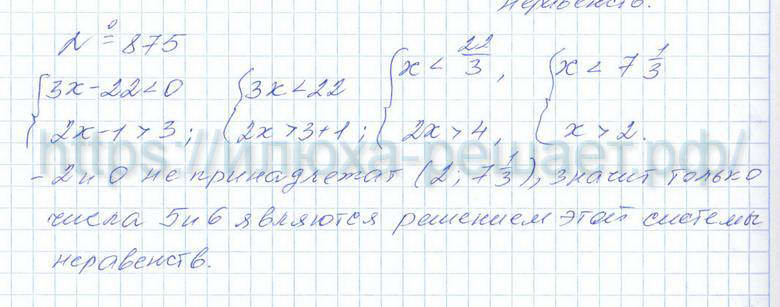 неравенств.
№ 875
{3x-22<0 {3x<22 {x < 22/3, {x < 7 1/3
2x-1>3; 2x>3+1; 2x>4, x>2.
https://илюха-решает.рф/
-2 и 0 не принадлежат (2; 7 1/3), значит только
числа 5 и 6 являются решением этой системы
неравенств.